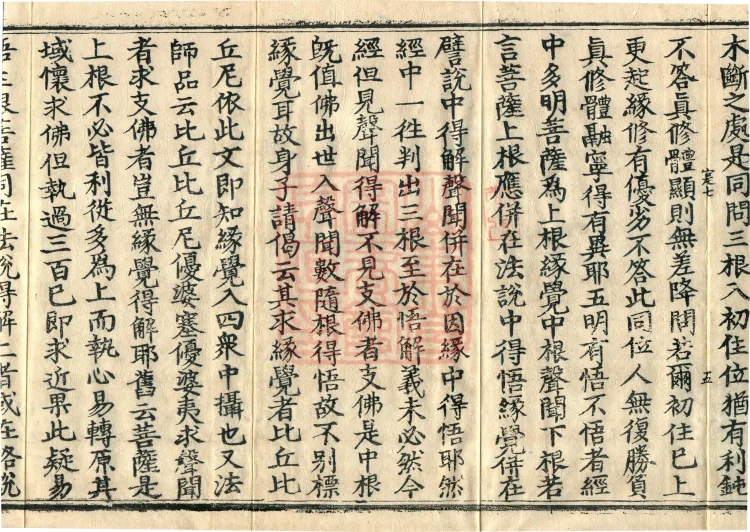 木斷之處是同問三根入初住位猶有利鈍
不答真修體顯則無差降問若爾初住已上
更起緣修有優劣不答此同位人無復勝負
真修體融寧得有異耶五明有悟不悟者經
中多明菩薩為上根緣覺中根聲聞下根若
言菩薩上根應併在法說中得悟緣覺併在
譬說中得解聲聞併在於因緣中得悟耶然
經中一往判出三根至於悟解義未必然今
經但見聲聞得解不見支佛者支佛是中根
旣值佛出世入聲聞數隨根得悟故不別標
緣覺耳故身子請偈云其求緣覺者比丘比
丘尼依此文即知緣覺入四衆中攝也又法
師品云比丘比丘尼優婆塞優婆夷求聲聞
者求支佛者豈無緣覺得解耶舊云菩薩是
上根不必皆利從多為上而執心易轉原其
域懷求佛但執過三百已即求近果此疑易
悟上根菩薩同在法說得解二者或在略說